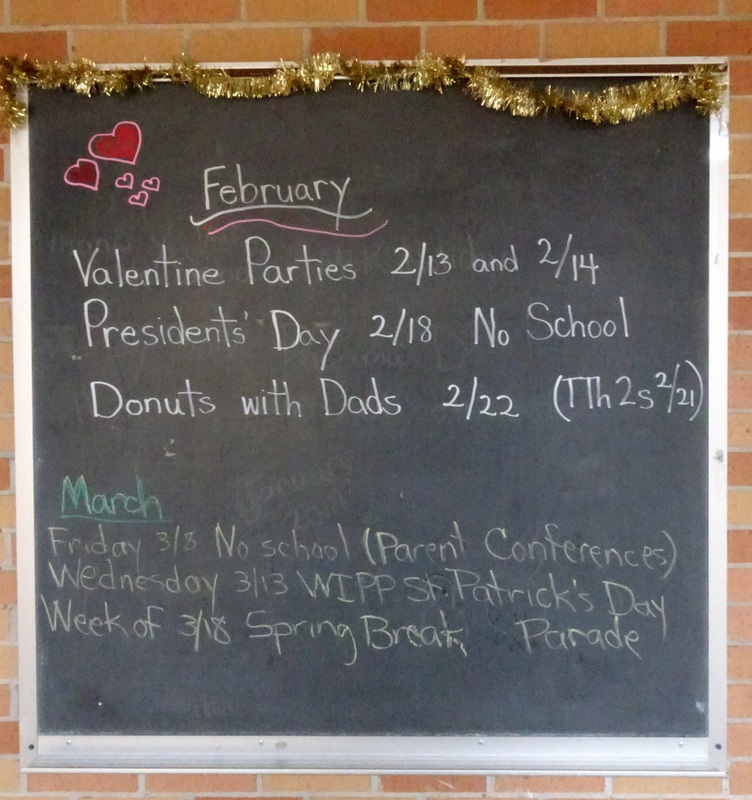 February
Valentine Parties 2/13 and 2/14
Presidents' Day 2/18 No School
Donuts with Dads 2/22 (TTh 2s 2/21)
March
Friday 3/8 No school (Parent Conferences)
Wednesday 3/13 WIPP St. Patrick's Day
Week of 3/18 Spring Break Parade